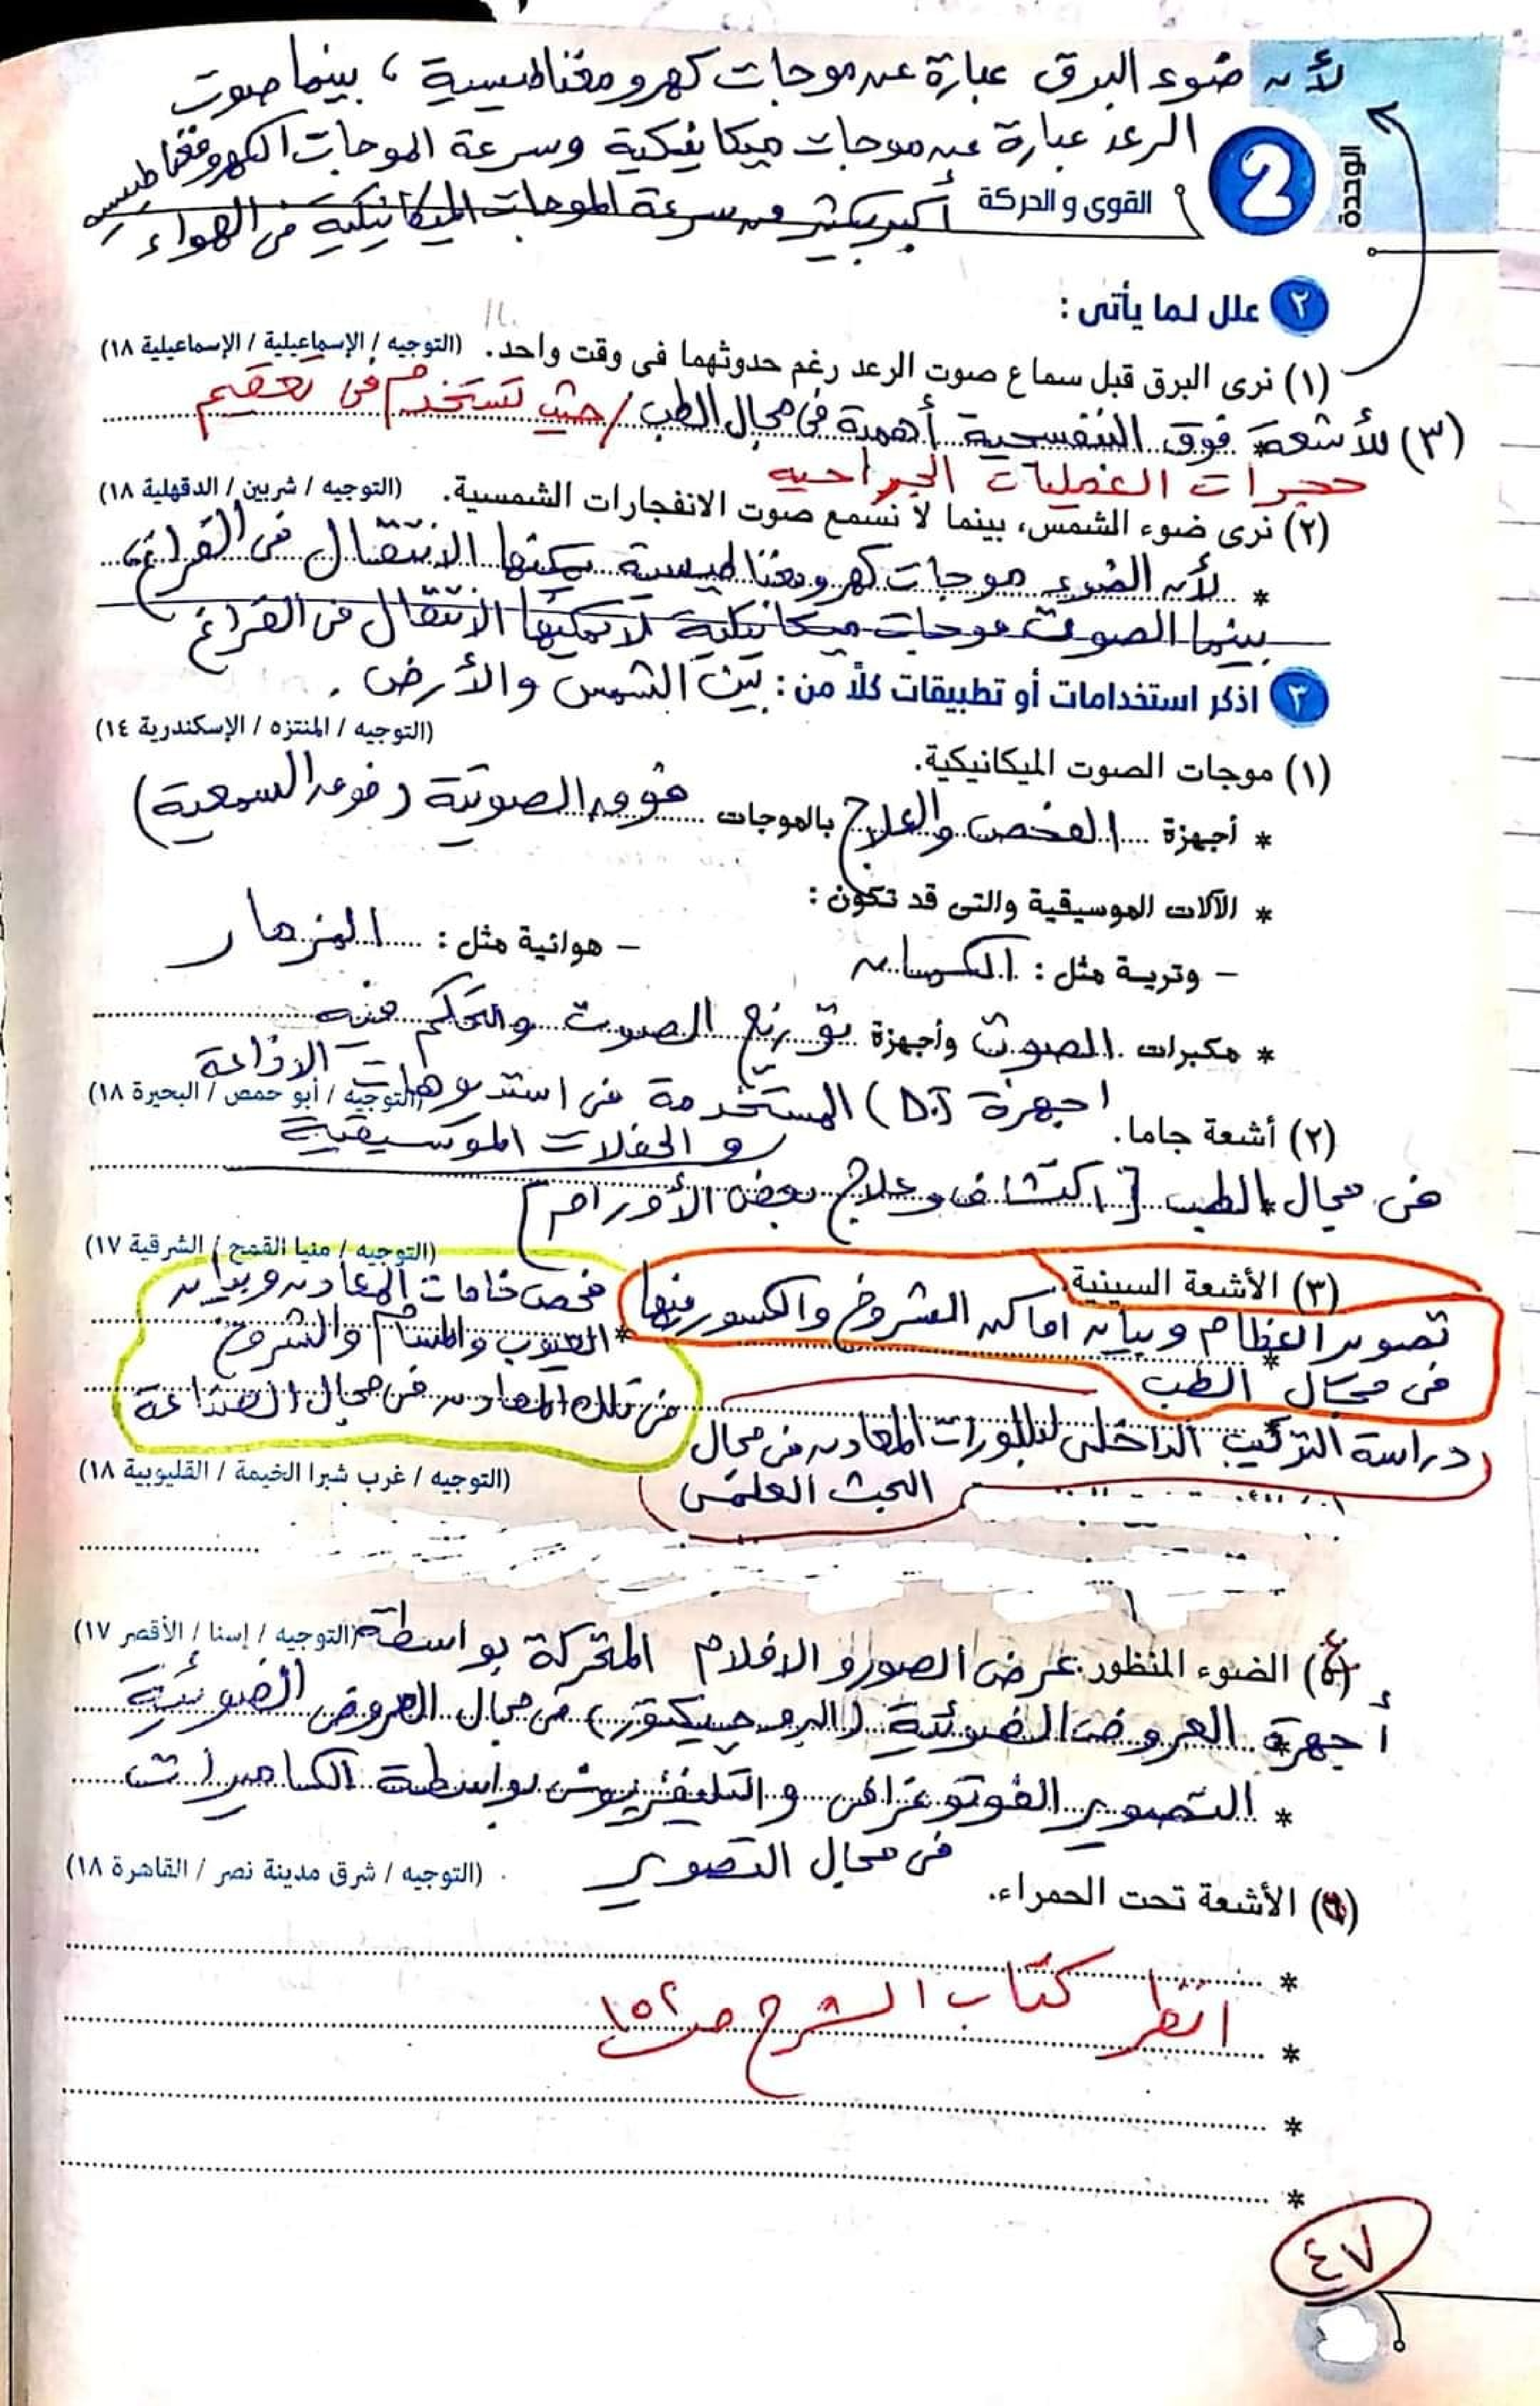 لأن ضوء البرق عبارة عن موجات كهرومغناطيسية ، بينما صوت
الرعد عبارة عن موجات ميكانيكية وسرعة الموجات الكهرومغناطيسيه
أكبر بكثير من سرعة الموجات الميكانيكية فى الهواء
الوحدة
2
القوى و الحركة
٢ علل لما يأتى :
(١) نرى البرق قبل سماع صوت الرعد رغم حدوثهما فى وقت واحد. (التوجيه / الإسماعيلية / الإسماعيلية ١٨)
(٣) للأشعة فوق البنفسجية أهمية فى مجال الطب / حيث تستخدم فى تعقيم
حجرات العمليات الجراحيه
(٢) نرى ضوء الشمس، بينما لا نسمع صوت الانفجارات الشمسية. (التوجيه / شربين / الدقهلية ١٨)
* لأن الضوء موجات كهرومغناطيسية يمكنها الانتقال فى الفراغ،
بينما الصوت موجات ميكانيكية لا يمكنها الانتقال فى الفراغ
بين الشمس والأرض .
٣ اذكر استخدامات أو تطبيقات كلًا من :
(التوجيه / المنتزه / الإسكندرية ١٤)
(١) موجات الصوت الميكانيكية.
* أجهزة الفحص والعلاج بالموجات فوق الصوتية (فوق السمعية)
* الآلات الموسيقية والتى قد تكون :
– وترية مثل : الكمان – هوائية مثل : المزمار
* مكبرات الصوت وأجهزة توزيع الصوت والتحكم فيه
اجهزة D.J) المستخدمة فى استديوهات الاذاعة
و الحفلات الموسيقية
(٢) أشعة جاما. (التوجيه / أبو حمص / البحيرة ١٨)
* فى مجال الطب [اكتشاف وعلاج بعض الأورام]
(٣) الأشعة السينية. (التوجيه / منيا القمح / الشرقية ١٧)
تصوير العظام وبيان اماكن الشروخ والكسور فيها
* فى مجال الطب
* فحص خامات المعادن وبيان
العيوب والمسام والشروخ
فى تلك المعادن فى مجال الصناعة
دراسة التركيب الداخلى لبللورات المعادن فى مجال
البحث العلمى
(التوجيه / غرب شبرا الخيمة / القليوبية ١٨)
(٤) الضوء المنظور عرض الصور والافلام المتحركة بواسطة (التوجيه / إسنا / الأقصر ١٧)
* أجهزة العروض الضوئية (البروجيكتور) فى مجال العروض الضوئية
* التصوير الفوتوغرافى والتليفزيونى بواسطة الكاميرات
فى مجال التصوير
الأشعة تحت الحمراء. (التوجيه / شرق مدينة نصر / القاهرة ١٨)
*
* انظر كتاب الشرح ص ١٥٢
*
*
٤٧